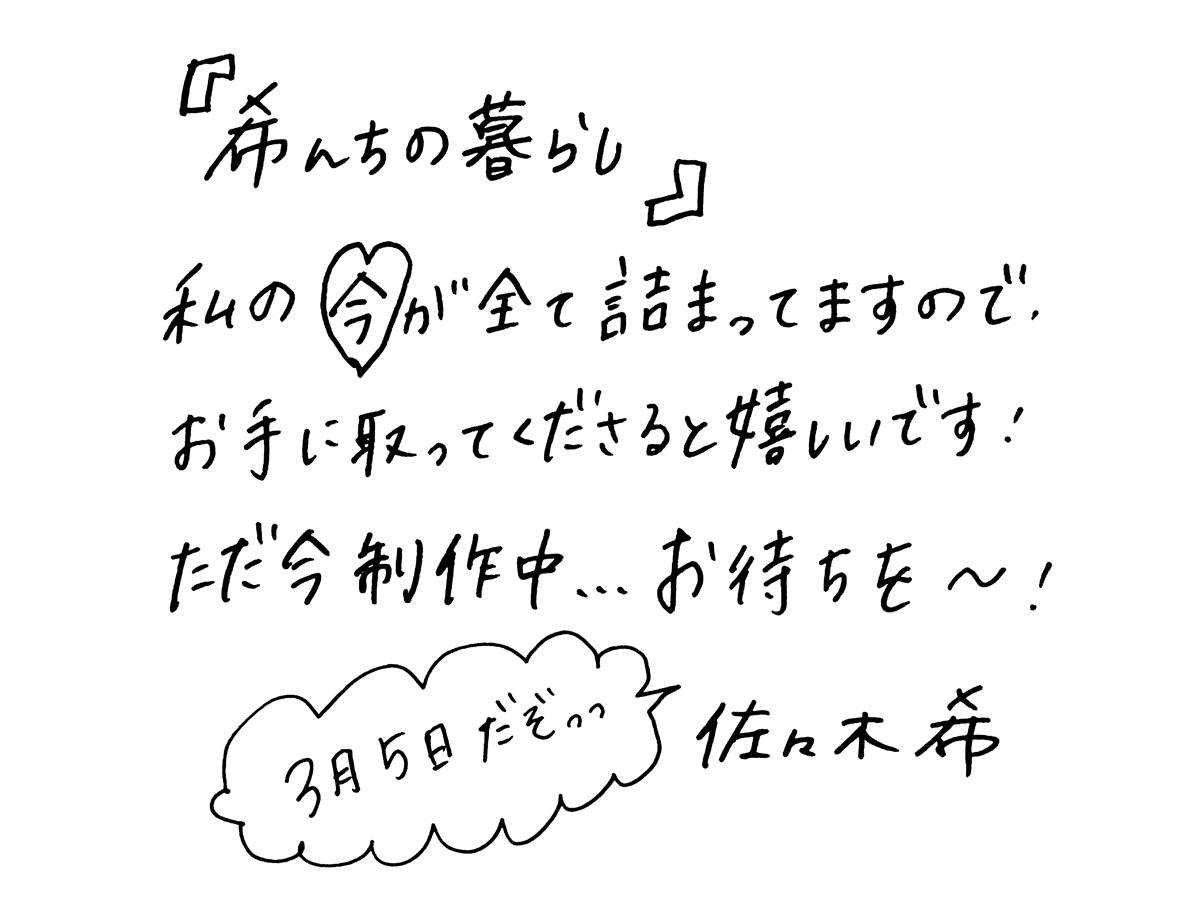 『希んちの暮らし』
私の今が全て詰まってますので、
お手に取ってくださると嬉しいです!
ただ今制作中...お待ちを〜!
3月5日だぞっっ
佐々木希